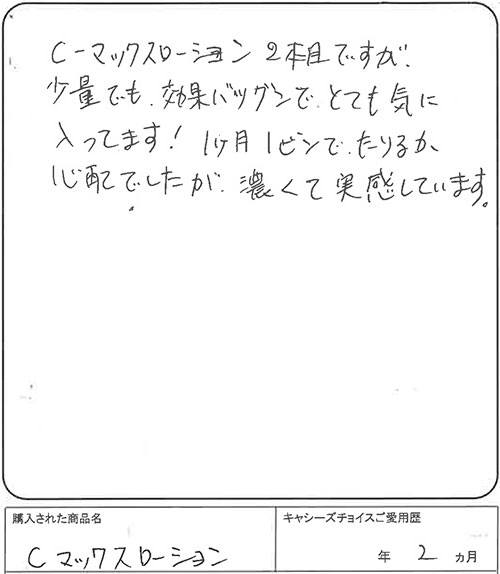 C-マックスローション 2本目ですが、
少量でも、効果バツグンで、とても気に
入ってます! 1ヶ月1ビンで、たりるか、
心配でしたが、濃くて実感しています。
購入された商品名
キャシーズチョイスご愛用歴
Cマックスローション
年 2 ヵ月